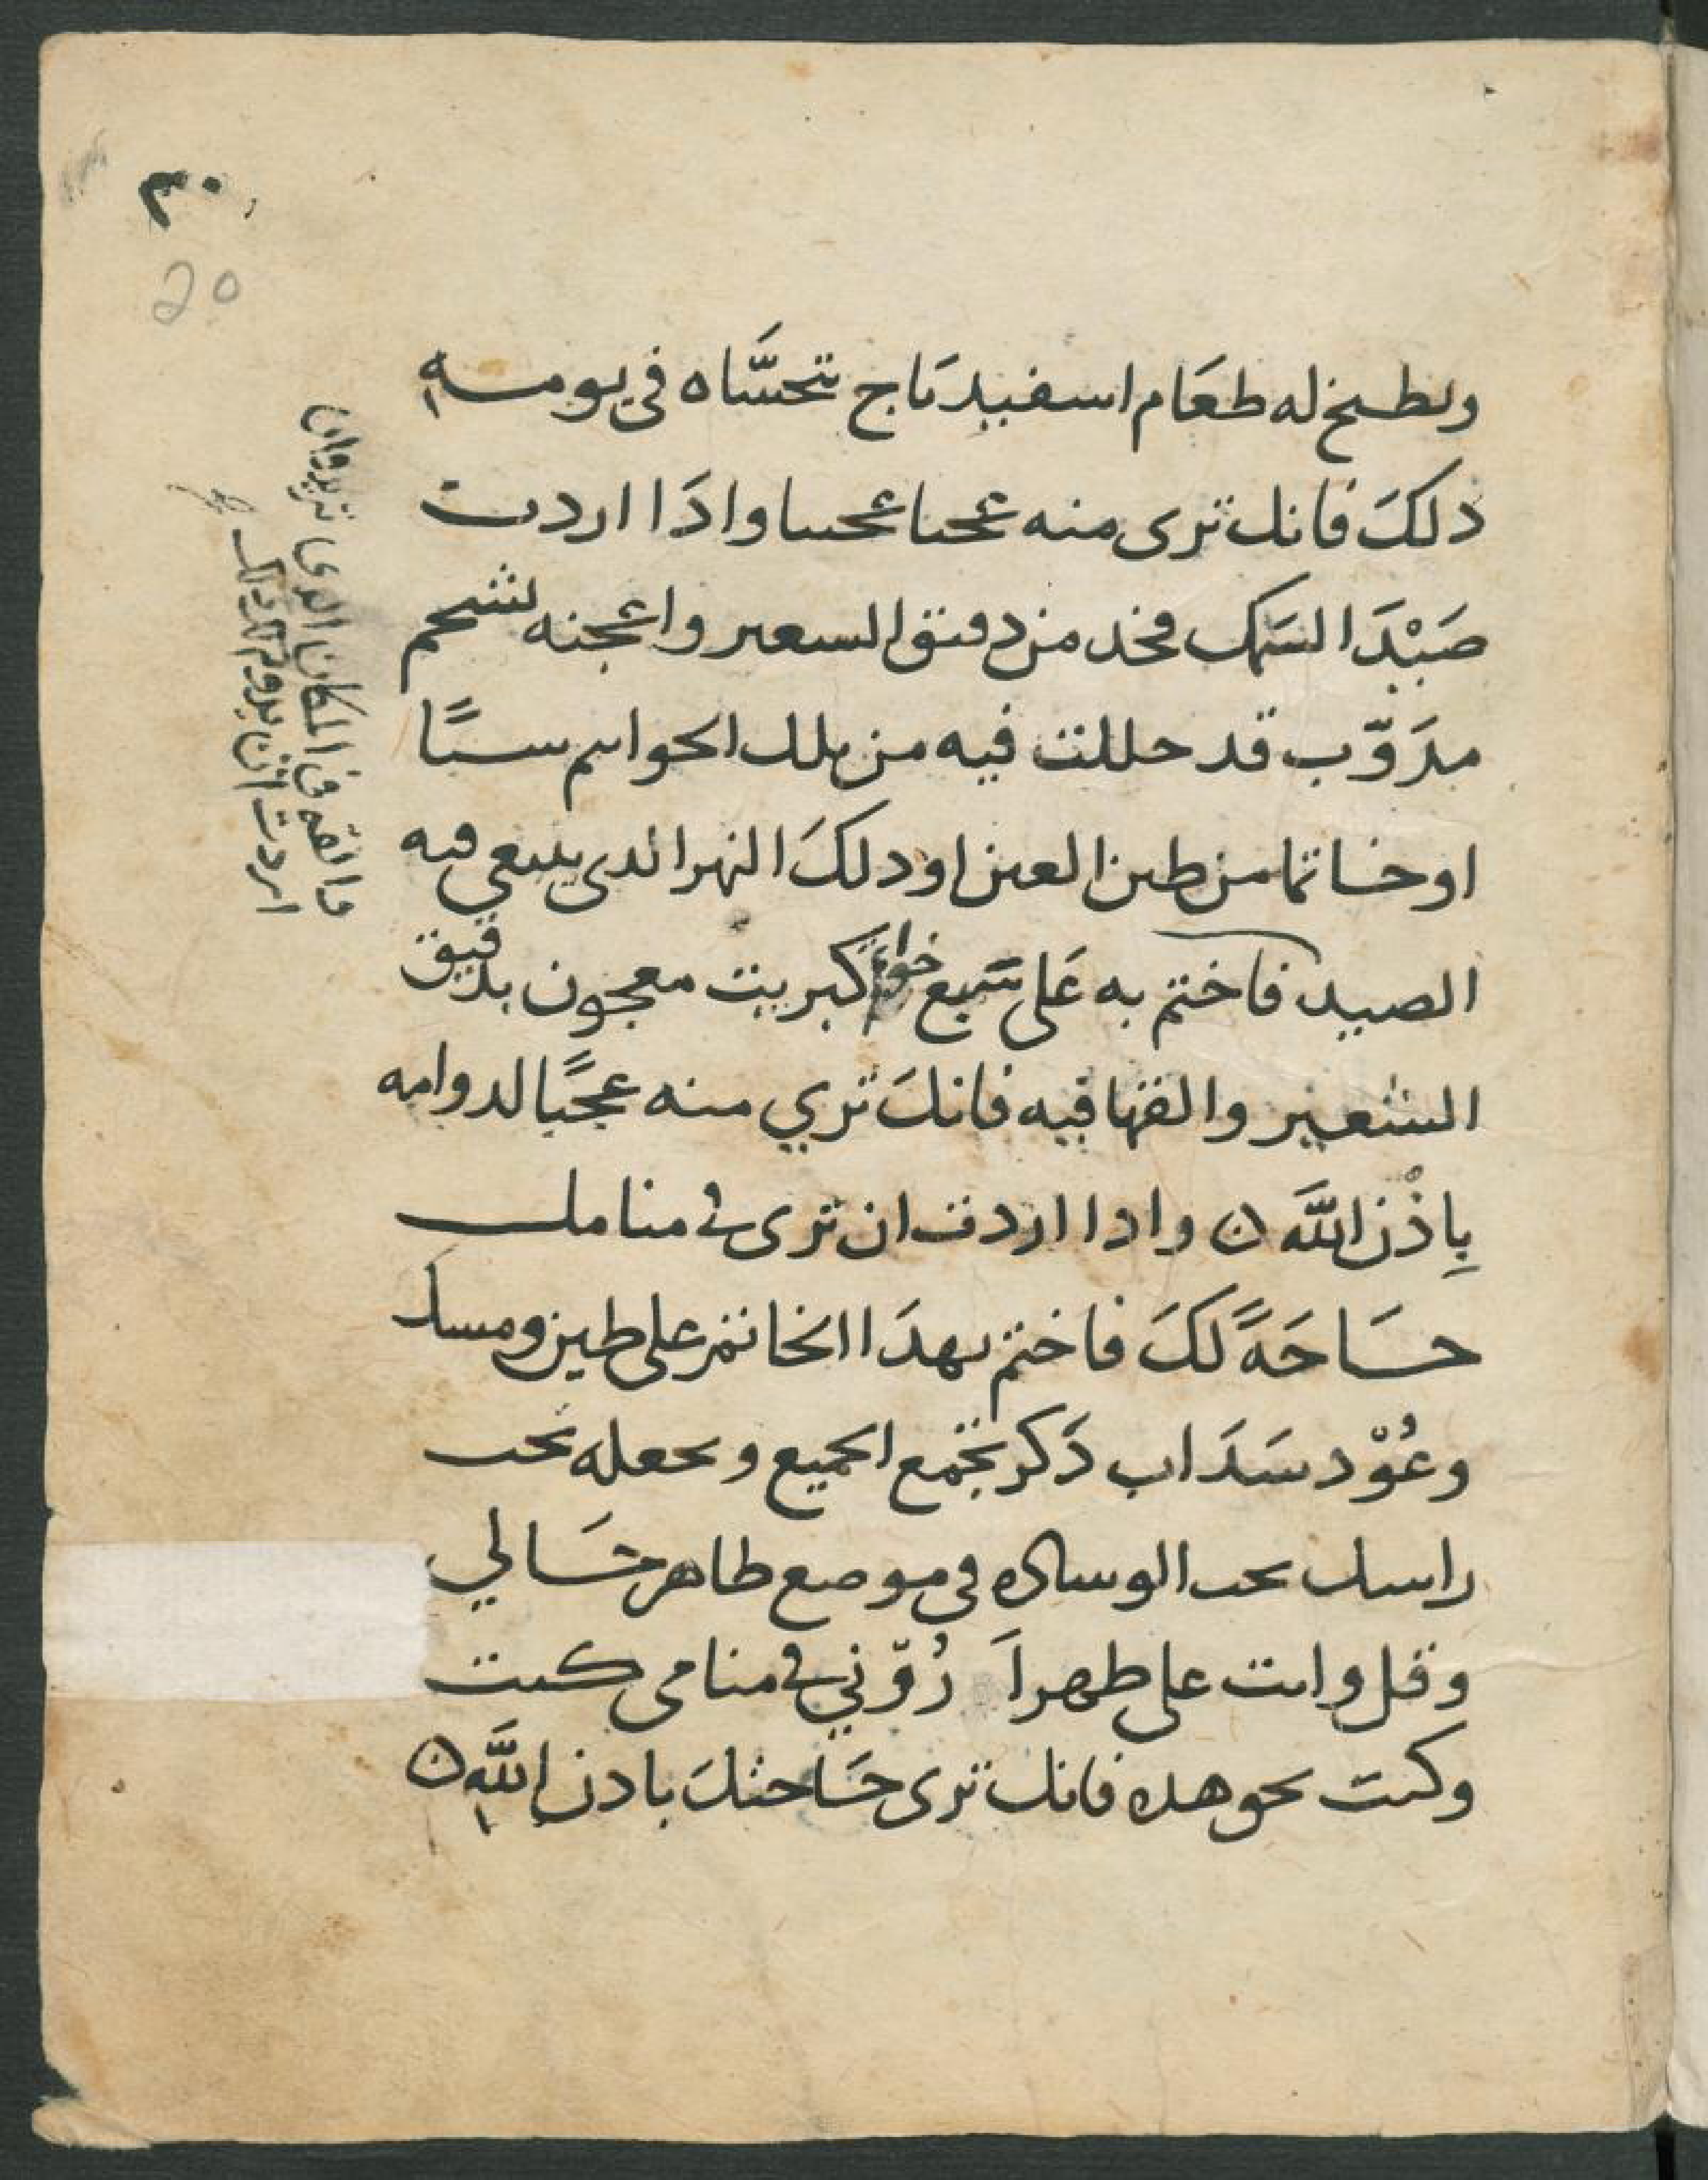 ٢٠
20
ويطبخ له طعام اسفيدباج يتحسَّاه في يومه
ذلكَ فانك ترى منه عجبا عجيبا واذَا اردت
صَيْدَ السَمك فخد من دقيق الشعير واعجنه بشحم
مدَوّب قد حللت فيه من تلك الخواتم شيئًا
او خاتما من طين العين او ذلكَ النهر الدى يبتغى فيه
الصيد فاختم به عَلى سَبع خواتم كبريت معجون بدقيق
الشعير والقها فيه فانكَ تري منه عجبًا لدوامه
بِاذْن اللَّه ن وادا اردت ان ترى في منامك
حَاجَةً لكَ فاختم بهدَا الخاتم على طين ومسك
وعُوْد سَدَاب ذَكر تجمع الجميع وتجعله تحت
راسك تحت الوساده في موضع طاهر خَالي
وقل وانت على طهر اَرُوّني في منامى كيت
وكيت نحو هده فانك ترى حَاجتكَ بادن اللَّه ن
فالقه في المكان الدى تريد وان
اردت ان يدوم لك دلك